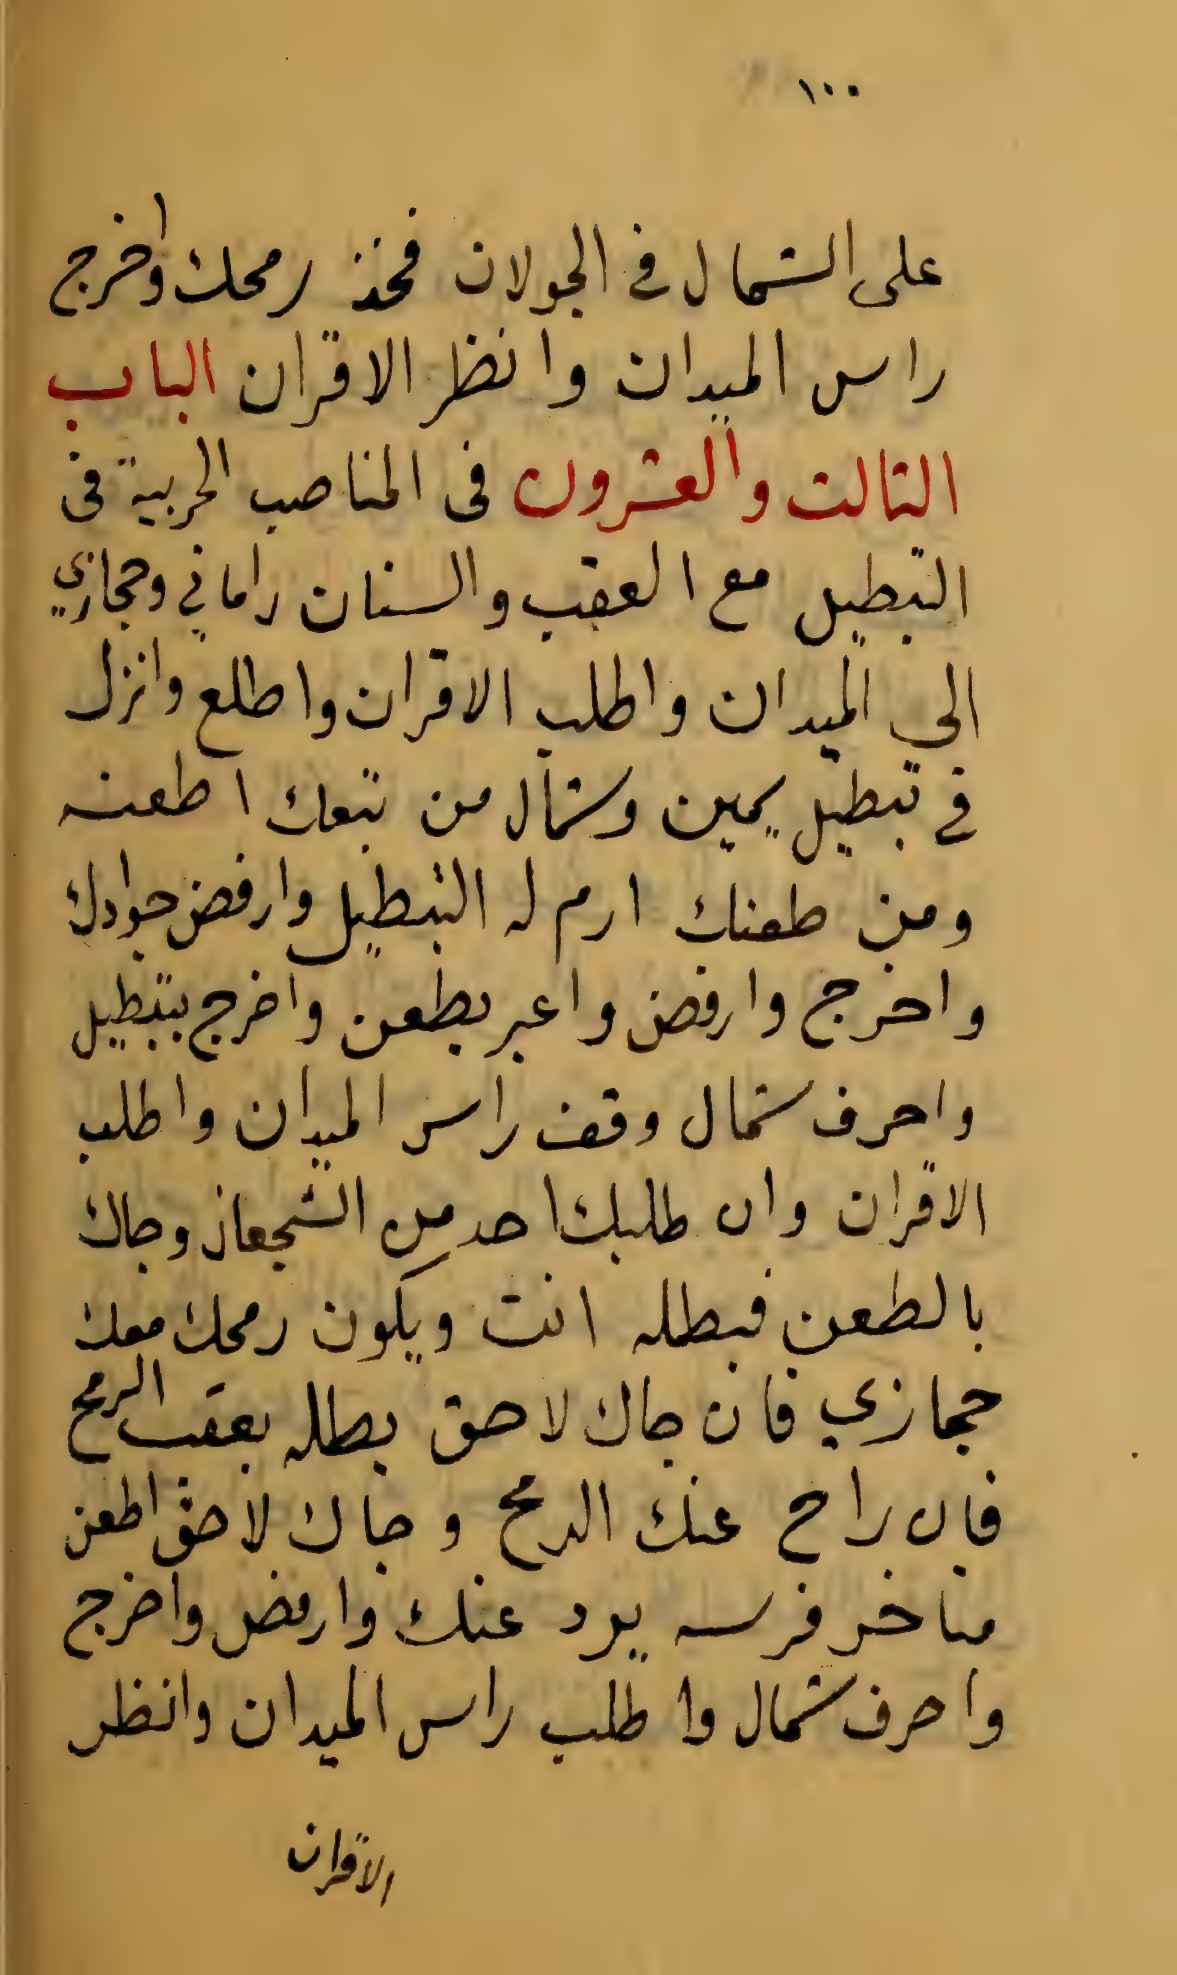 ١٠٠
على الشمال في الجولان فخذ رمحك واخرج
راس الميدان وانظر الاقران الباب
التالت والعشرون فى المناصب الحربية فى
التبطيل مع العقب والسنان راماني وحجازي
الي الميدان واطلب الاقران واطلع وانزل
في تبطيل يمين وشمال من تبعك اطعنه
ومن طعنك ارم له التبطيل وارفض جوادك
واخرج وارفض واعبر بطعن واخرج بتبطيل
واحرف شمال وقف راس الميدان واطلب
الاقران وان طلبك احد من الشجعان وجاك
بالطعن فبطله انت ويكون رمحك معك
حجازي فان جاك لاحق بطله بعقب الرمح
فان راح عنك الرمح وجاك لاحق اطعن
مناخر فرسه يرد عنك وارفض واخرج
واحرف شمال واطلب راس الميدان وانظر
الاقران